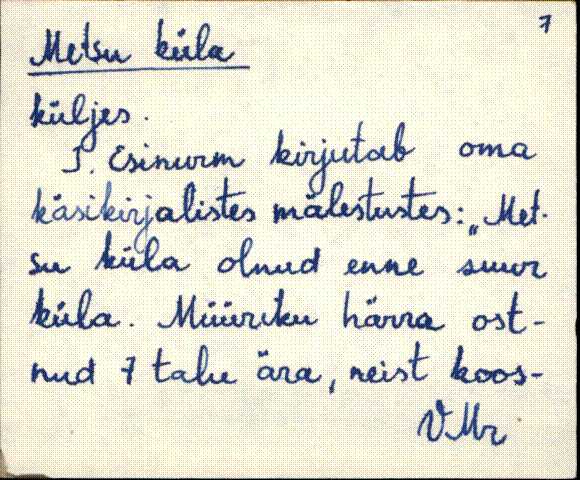 7
Metsu küla
küljes.
J. Esinurm kirjutab oma
käsikirjalistes mälestustes: „Met-
su küla olnud enne suur
küla. Müüriku härra ost-
nud 7 talu ära, neist koos-
VMr